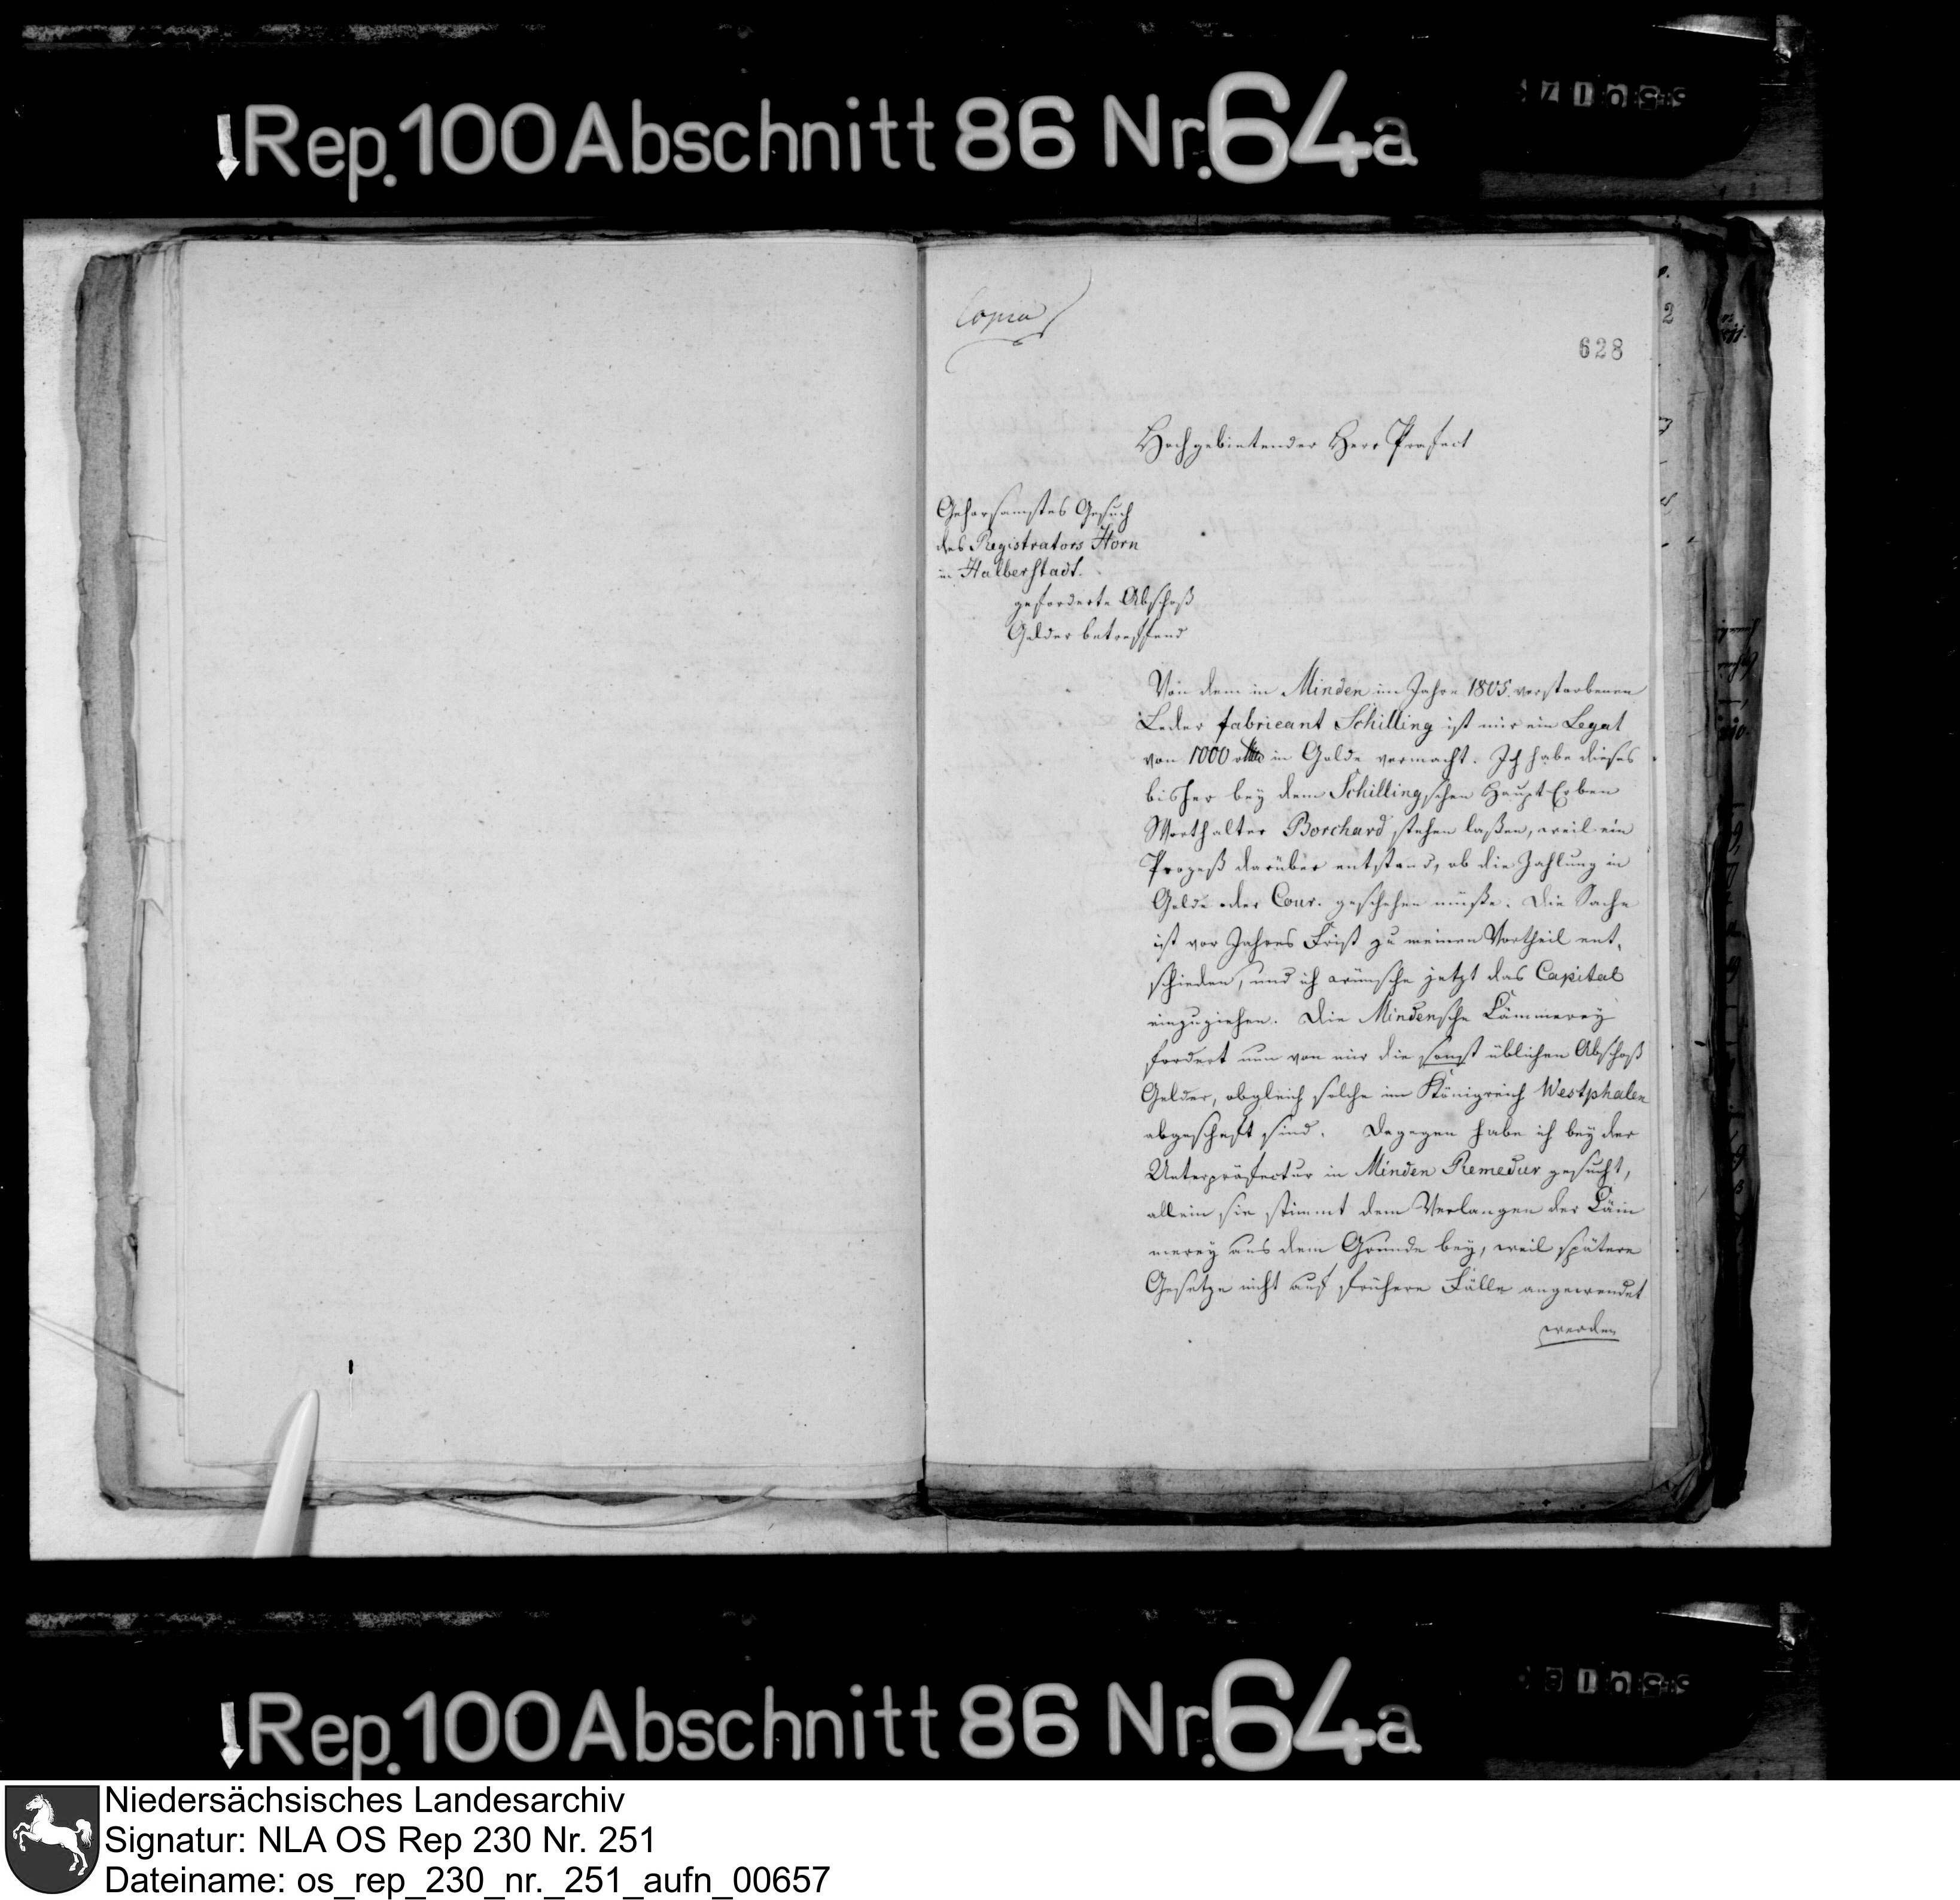 Rep. 100 Abschnitt 86 Nr. 64a
Copia
628
Hochgebietender Herr Praefect
Gehorsamstes Gesuch
des Registrators Horn
in Halberstadt.
geforderte Abschoß
Gelder betreffend
Von dem in Minden im Jahre 1805. verstorbenen
Leder fabricant Schilling ist mir ein Legat
von 1000 rthlr in Golde vermacht. Ich habe dieses
bisher bey dem Schillingschen Haupt-Erben
Worthalter Borchard stehen laßen, weil ein
Prozeß darüber entstand, ob die Zahlung in
Golde oder Cour. geschehen müße. Die Sache
ist vor Jahres Frist zu meinen Vortheil ent„
schieden, und ich wünsche jetzt das Capital
einzuziehen. Die Mindensche Cämmerey
fordert nun von mir die sonst üblichen Abschoß
Gelder, obgleich solche im Königreich Westphalen
abgeschaft sind. Dagegen habe ich bey der
Unterpräfectur in Minden Remedur gesucht,
allein sie stimmt dem Verlangen der Cäm
merey aus dem Grunde bey, weil spätere
Gesetze nicht auf frühere Fälle angewendet
werden
Rep. 100 Abschnitt 86 Nr. 64a
Niedersächsisches Landesarchiv
Signatur: NLA OS Rep 230 Nr. 251
Dateiname: os_rep_230_nr._251_aufn_00657